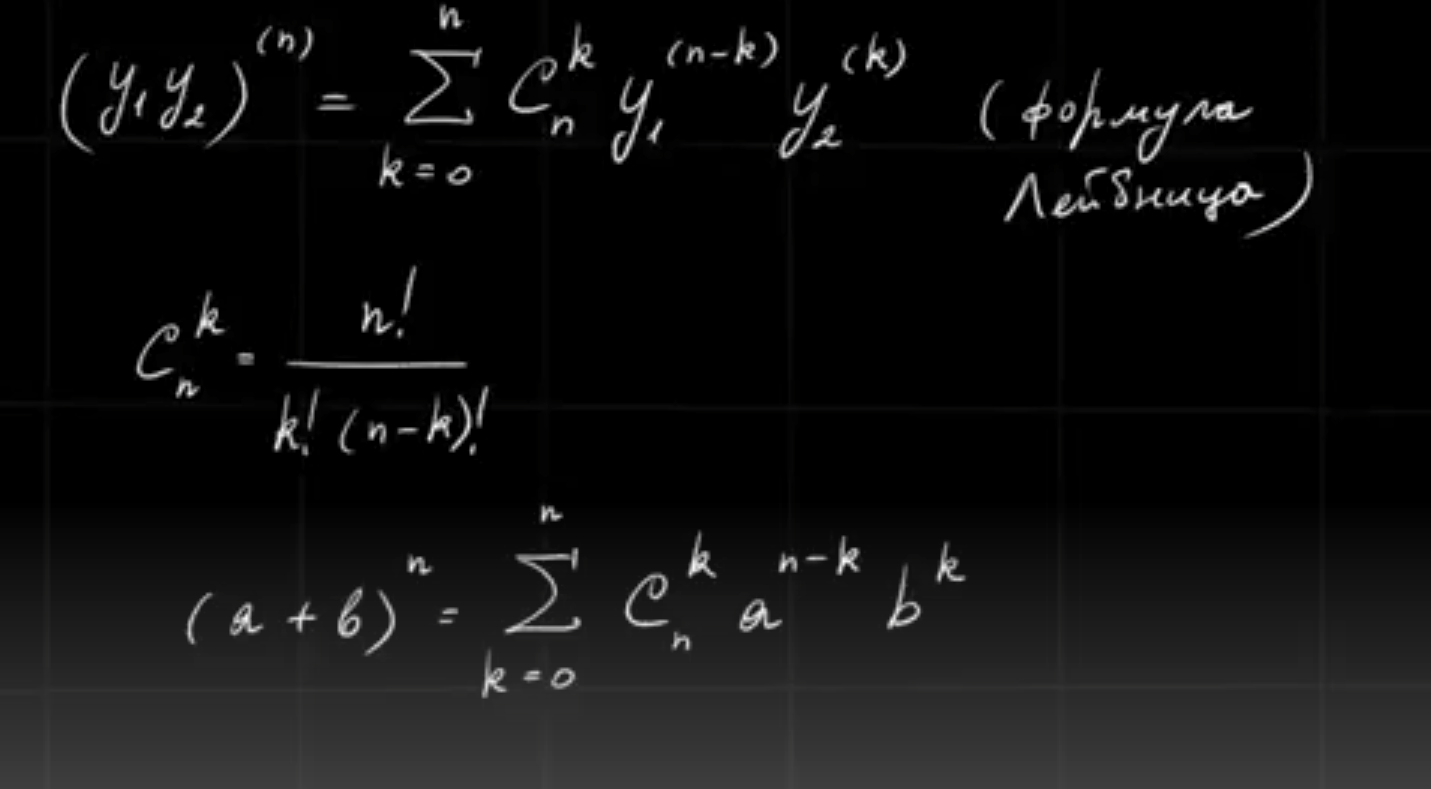 (y₁y₂)⁽ⁿ⁾ = ∑ₖ₌₀ⁿ Cₙᵏ y₁⁽ⁿ⁻ᵏ⁾ y₂⁽ᵏ⁾ (формула
Лейбница)
Cₙᵏ = n! / k! (n-k)!
(a + b)ⁿ = ∑ₖ₌₀ⁿ Cₙᵏ aⁿ⁻ᵏ bᵏ